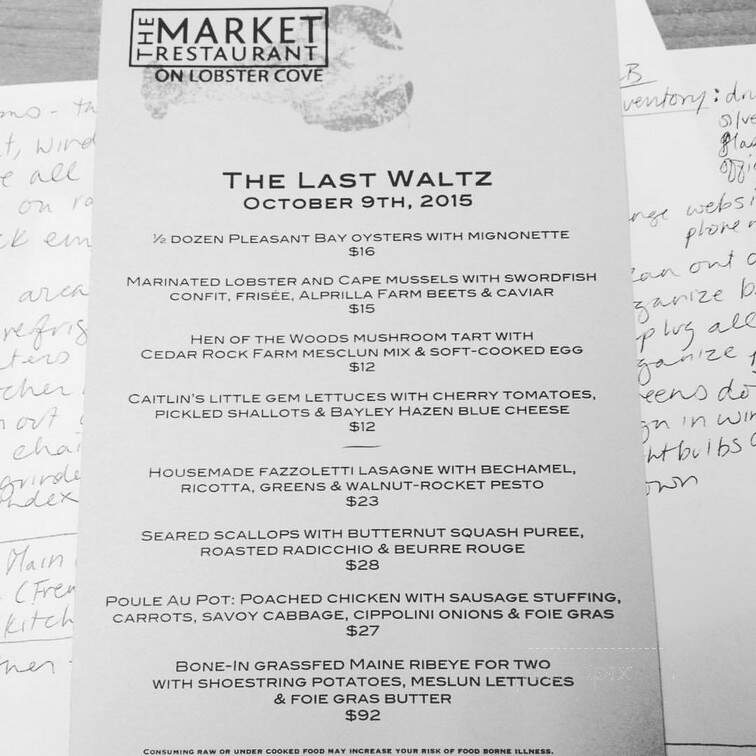 THE MARKET
RESTAURANT
ON LOBSTER COVE
THE LAST WALTZ
OCTOBER 9TH, 2015
½ DOZEN PLEASANT BAY OYSTERS WITH MIGNONETTE
$16
MARINATED LOBSTER AND CAPE MUSSELS WITH SWORDFISH
CONFIT, FRISÉE, ALPRILLA FARM BEETS & CAVIAR
$15
HEN OF THE WOODS MUSHROOM TART WITH
CEDAR ROCK FARM MESCLUN MIX & SOFT-COOKED EGG
$12
CAITLIN'S LITTLE GEM LETTUCES WITH CHERRY TOMATOES,
PICKLED SHALLOTS & BAYLEY HAZEN BLUE CHEESE
$12
HOUSEMADE FAZZOLETTI LASAGNE WITH BECHAMEL,
RICOTTA, GREENS & WALNUT-ROCKET PESTO
$23
SEARED SCALLOPS WITH BUTTERNUT SQUASH PUREE,
ROASTED RADICCHIO & BEURRE ROUGE
$28
POULE AU POT: POACHED CHICKEN WITH SAUSAGE STUFFING,
CARROTS, SAVOY CABBAGE, CIPPOLINI ONIONS & FOIE GRAS
$27
BONE-IN GRASSFED MAINE RIBEYE FOR TWO
WITH SHOESTRING POTATOES, MESLUN LETTUCES
& FOIE GRAS BUTTER
$92
CONSUMING RAW OR UNDER COOKED FOOD MAY INCREASE YOUR RISK OF FOOD BORNE ILLNESS.
e all
on
area
chai
Main
kitch
B
ventory: dr
websi
phone
out
plug all
in win
htbulbs
own